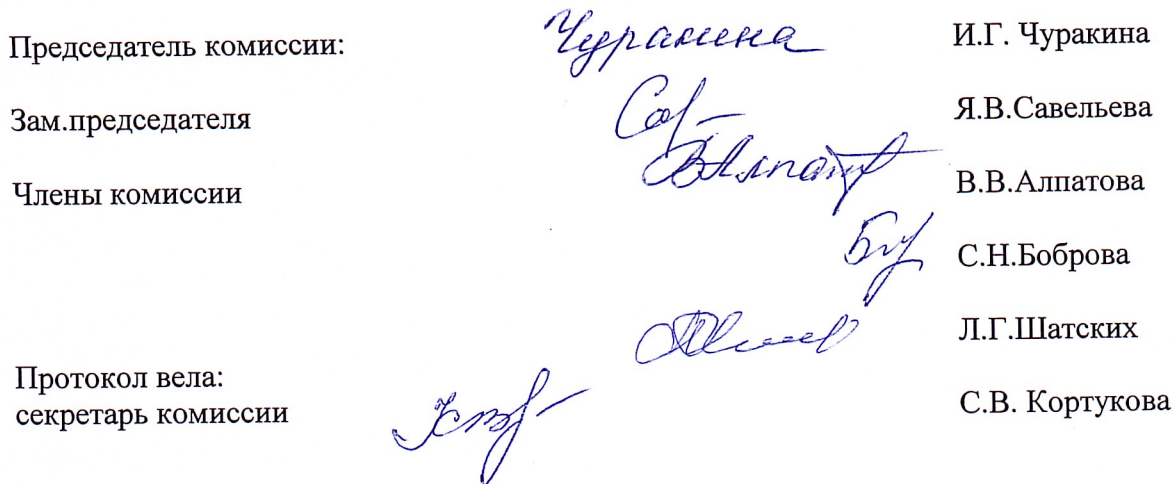 Председатель комиссии: Чуракина И.Г. Чуракина
Зам.председателя Я.В.Савельева
Члены комиссии В.В.Алпатова
С.Н.Боброва
Л.Г.Шатских
Протокол вела:
секретарь комиссии С.В. Кортукова